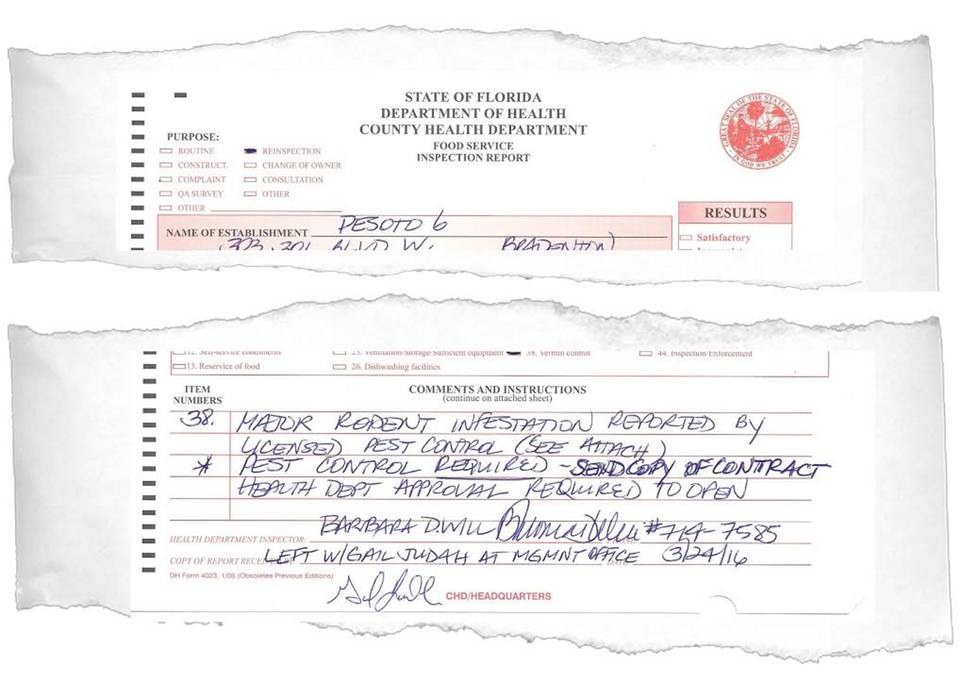 STATE OF FLORIDA
DEPARTMENT OF HEALTH
COUNTY HEALTH DEPARTMENT
FOOD SERVICE
INSPECTION REPORT
GREAT SEAL OF THE STATE OF FLORIDA
IN GOD WE TRUST
PURPOSE:
ROUTINE REINSPECTION
CONSTRUCT. CHANGE OF OWNER
COMPLAINT CONSULTATION
QA SURVEY OTHER
OTHER
RESULTS
NAME OF ESTABLISHMENT DESOTO 6
Satisfactory
BLVD W. BRADENTON
12. Self-service condiments 25. Ventilation/Storage/Sufficient equipment 38. Vermin control 44. Inspection/Enforcement
13. Reservice of food 26. Dishwashing facilities
ITEM NUMBERS COMMENTS AND INSTRUCTIONS
(continue on attached sheet)
38. MAJOR RODENT INFESTATION REPORTED BY
LICENSED PEST CONTROL (SEE ATTACH)
* PEST CONTROL REQUIRED - SEND COPY OF CONTRACT
HEALTH DEPT APPROVAL REQUIRED TO OPEN
BARBARA D. WILL #714-7585
HEALTH DEPARTMENT INSPECTOR:
LEFT W/GAIL JUDAH AT MGMNT OFFICE 3/24/16
COPY OF REPORT
DH Form 4023, 1/05 (Obsoletes Previous Editions)
CHD/HEADQUARTERS